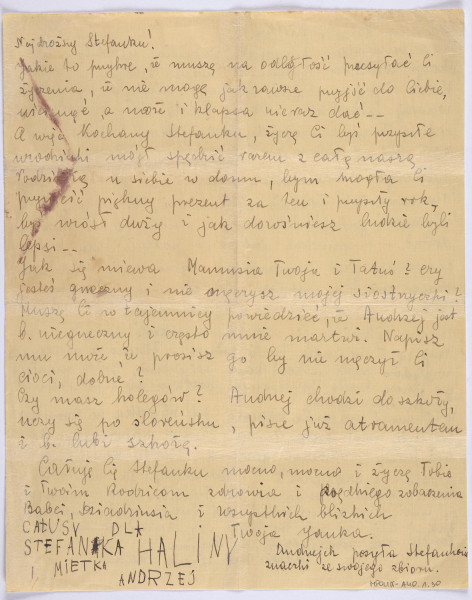 Najdroższy Stefanku!
Jakie to przykre, że muszę na odległość przesyłać Ci
życzenia, że nie mogę jak zawsze przyjść do Ciebie,
uściskać, a może i klapsa nieraz dać--
A więc Kochany Stefanku, życzę Ci byś przyszłe
urodziny mógł spędzić razem z całą naszą
rodziną u siebie w domu, bym mogła Ci
przynieść piękny prezent za ten i przyszły rok,
byś wrósł duży i jak dorośniesz ludzie byli
lepsi--
Jak się miewa Mamusia Twoja i Tatuś? czy
jesteś grzeczny i nie męczysz mojej siostrzyczki?
Muszę Ci w tajemnicy powiedzieć, że Andrzej jest
b. niegrzeczny i często mnie martwi. Napisz
mu może, że prosisz go by nie męczył Ci
cioci, dobrze?
Czy masz kolegów? Andrzej chodzi do szkoły,
uczy się po słoweńsku, pisze już atramentem
i b. lubi szkołę.
Całuję Cię Stefanku mocno, mocno i życzę Tobie
i Twoim Rodzicom zdrowia i rychłego zobaczenia
Babci, Dziadziusia i wszystkich bliskich
Twoja Janka.
CAŁUSY DLA
STEFANKA HALINY
I MIETKA
ANDRZEJ
Andrzejek posyła Stefankowi
znaczki ze swojego zbioru.